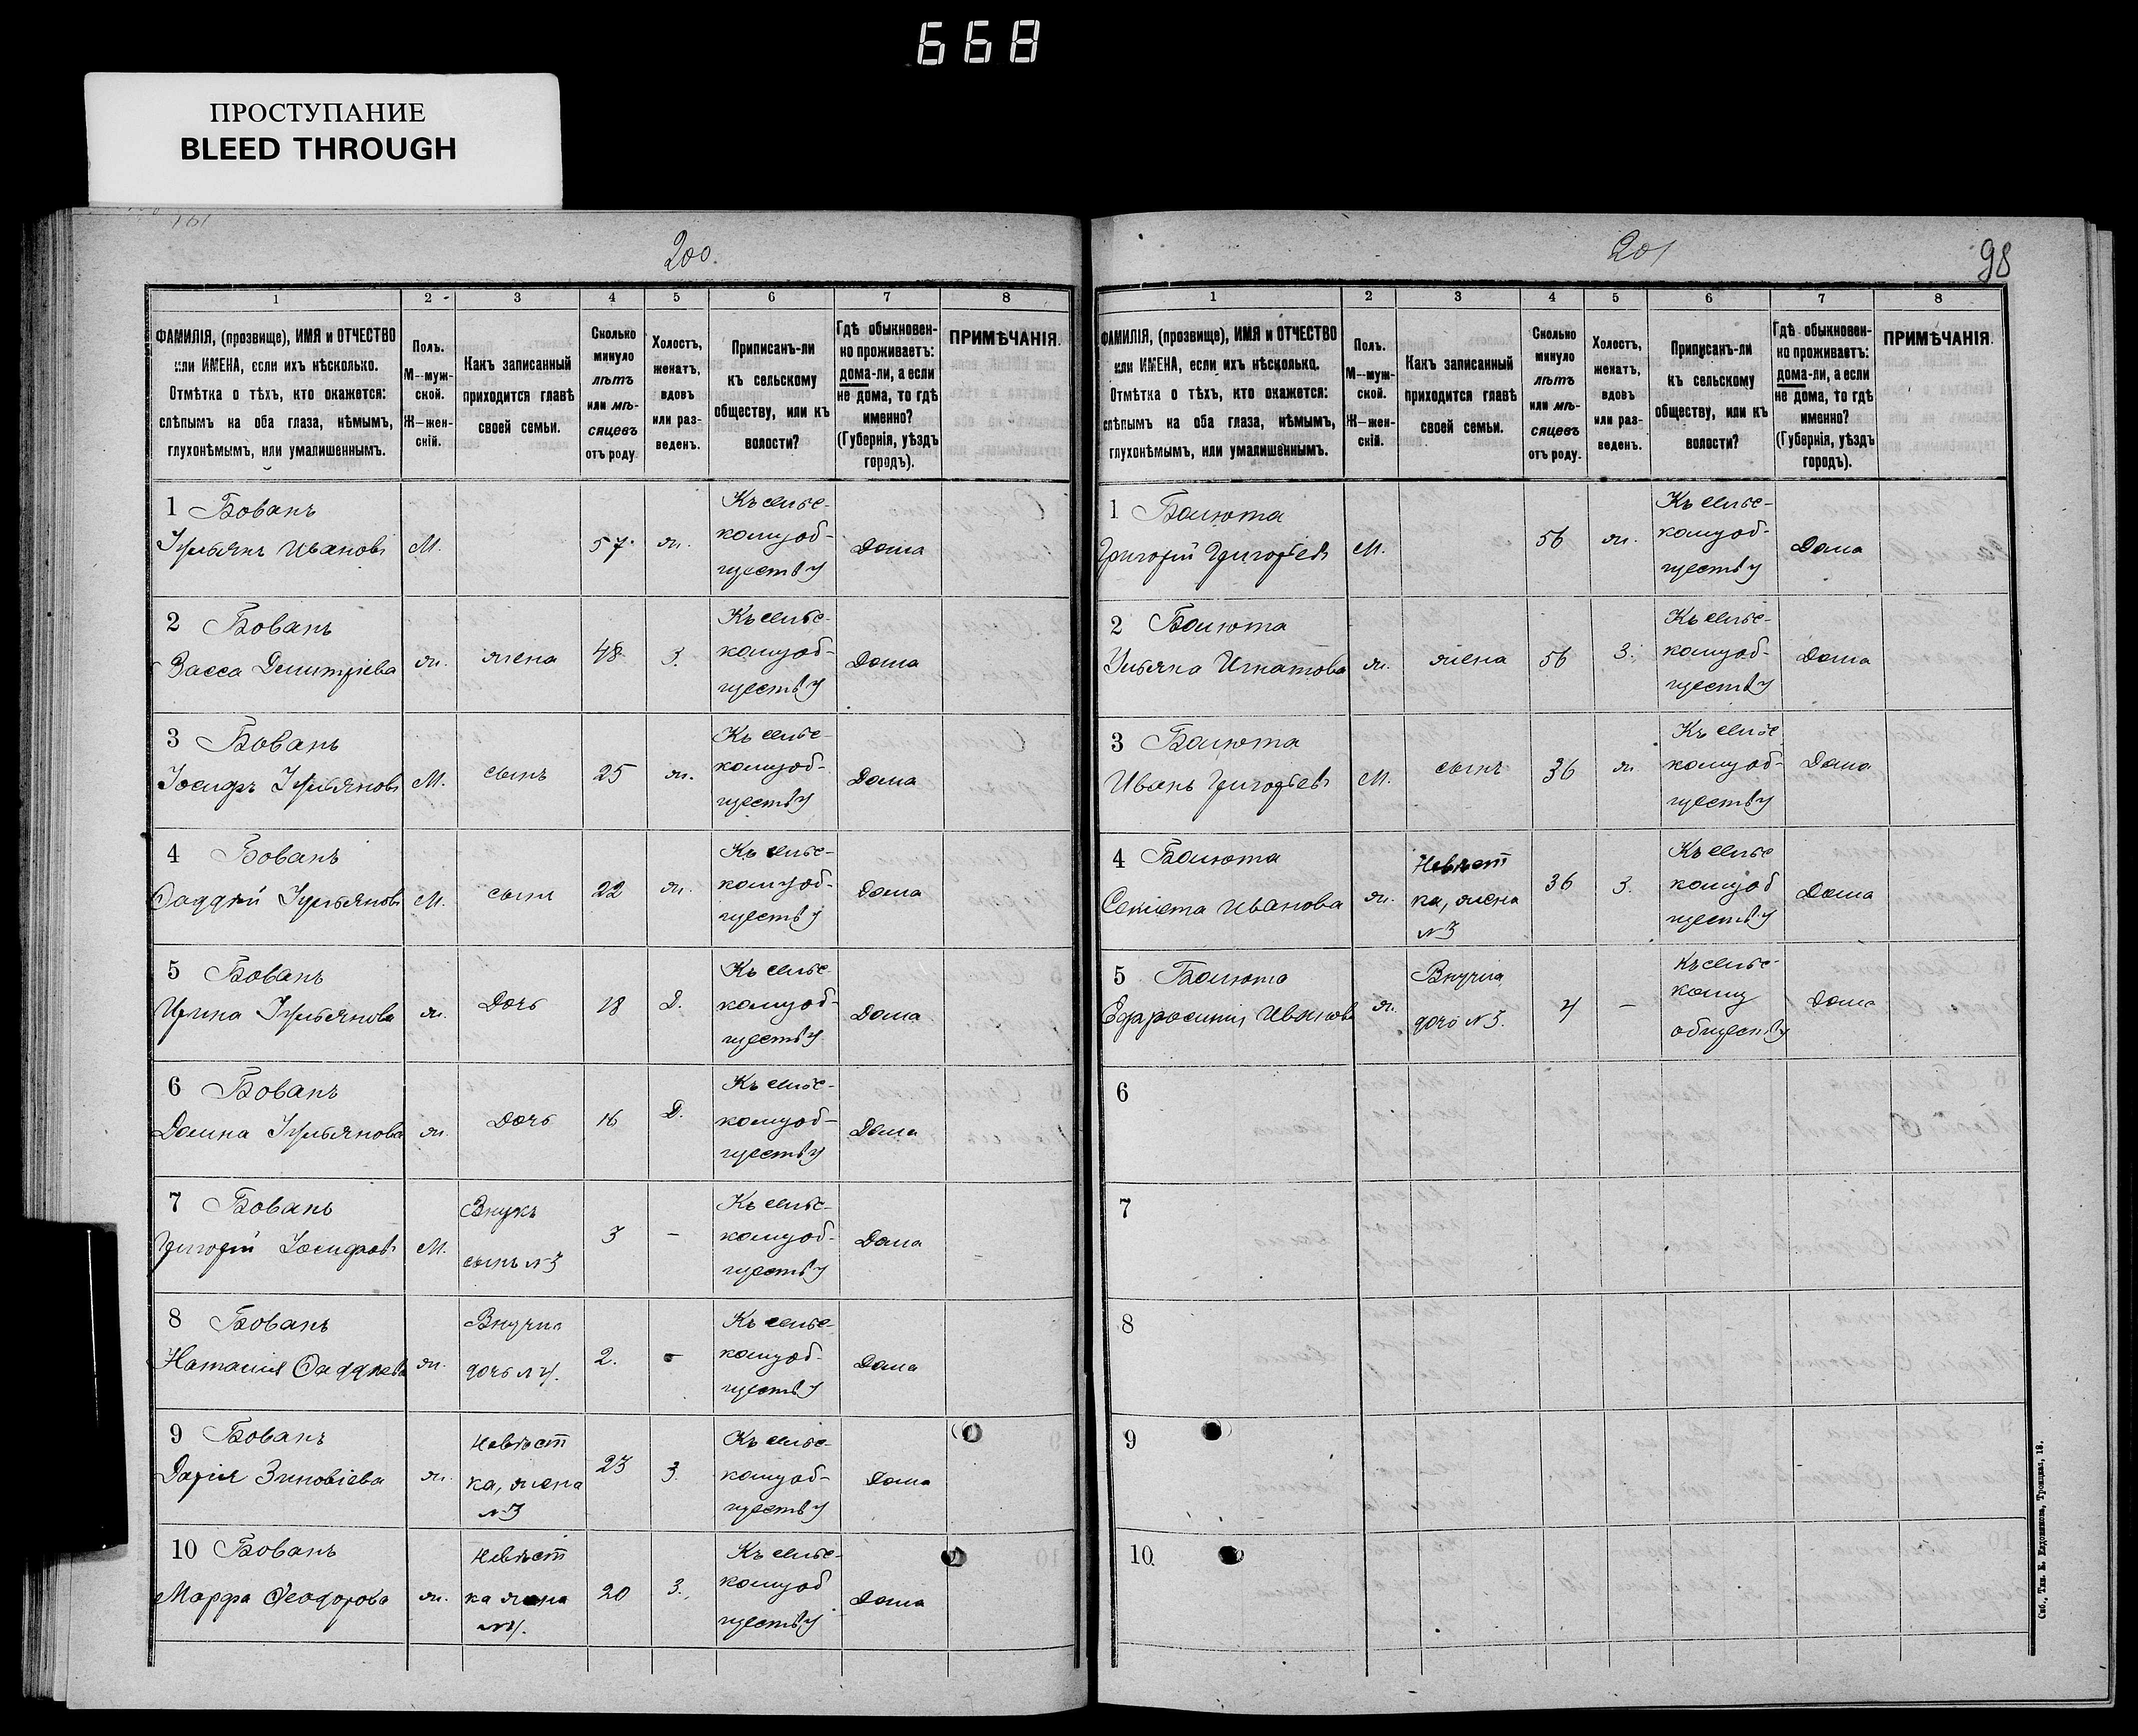 668
ПРОСТУПАНИЕ
BLEED THROUGH
200.
1 2 3 4 5 6 7 8
ФАМИЛІЯ, (прозвище), ИМЯ и ОТЧЕСТВО
или ИМЕНА, если ихъ нѣсколько.
Отмѣтка о тѣхъ, кто окажется:
слѣпымъ на оба глаза, нѣмымъ,
глухонѣмымъ, или умалишеннымъ.
Полъ.
М—муж-
ской.
Ж—жен-
скій.
Какъ записанный
приходится главѣ
своей семьи.
Сколько
минуло
лѣтъ
или мѣ-
сяцевъ
отъ роду.
Холостъ,
женатъ,
вдовъ
или раз-
веденъ.
Приписанъ-ли
къ сельскому
обществу, или къ
волости?
Гдѣ обыкновен-
но проживаетъ:
дома-ли, а если
не дома, то гдѣ
именно?
(Губернія, уѣздъ
городъ).
ПРИМѢЧАНІЯ.
1 Бованъ
Ивановъ М. 57 ж. Къ сельс-
кому об-
ществу Дома
2 Бованъ
Васса Дмитріева ж. жена 48 З. Къ сельс-
кому об-
ществу Дома
3 Бованъ
Іосифъ М. сынъ 25 ж. Къ сельс-
кому об-
ществу Дома
4 Бованъ
Фаддѣй М. сынъ 22 ж. Къ сельс-
кому об-
ществу Дома
5 Бованъ
Ирина ж. Дочь 18 Д. Къ сельс-
кому об-
ществу Дома
6 Бованъ
Домна ж. Дочь 16 Д. Къ сельс-
кому об-
ществу Дома
7 Бованъ
Григорій Іосифовъ М. Внукъ
сынъ №3 3 – Къ сельс-
кому об-
ществу Дома
8 Бованъ
Наталія Фаддѣева ж. Внучка
дочь №4. 2. – Къ сельс-
кому об-
ществу Дома
9 Бованъ
Дарія Зиновіева ж. Невѣст
ка, жена
№3 23 З. Къ сельс-
кому об-
ществу Дома
10 Бованъ
Марфа Феодорова ж. Невѣст
ка жена
№4. 20 З. Къ сельс-
кому об
ществу Дома
201
98
1 2 3 4 5 6 7 8
ФАМИЛІЯ, (прозвище), ИМЯ и ОТЧЕСТВО
или ИМЕНА, если ихъ нѣсколько.
Отмѣтка о тѣхъ, кто окажется:
слѣпымъ на оба глаза, нѣмымъ,
глухонѣмымъ, или умалишеннымъ.
Полъ.
М—муж-
ской.
Ж—жен-
скій.
Какъ записанный
приходится главѣ
своей семьи.
Сколько
минуло
лѣтъ
или мѣ-
сяцевъ
отъ роду.
Холостъ,
женатъ,
вдовъ
или раз-
веденъ.
Приписанъ-ли
къ сельскому
обществу, или къ
волости?
Гдѣ обыкновен-
но проживаетъ:
дома-ли, а если
не дома, то гдѣ
именно?
(Губернія, уѣздъ
городъ).
ПРИМѢЧАНІЯ.
1
Григорій Григорьевъ М. 56 ж. Къ сельс-
кому об-
ществу Дома
2
Ульяна Игнатова ж. жена 56 З. Къ сельс-
кому об-
ществу Дома
3
Иванъ Григорьевъ М. сынъ 36 ж. Къ сельс
кому об-
ществу Дома
4
Иванова ж. Невѣст
ка, жена
№3 36 З. Къ сельс
кому об
ществу Дома
5
Ефросинія Иванова ж. Внучка
дочь №3. 4 – Къ сельс-
кому
обществу Дома
6
7
8
9
10.
Спб., Тип. Е. Евдокимова, Троицкая, 18.